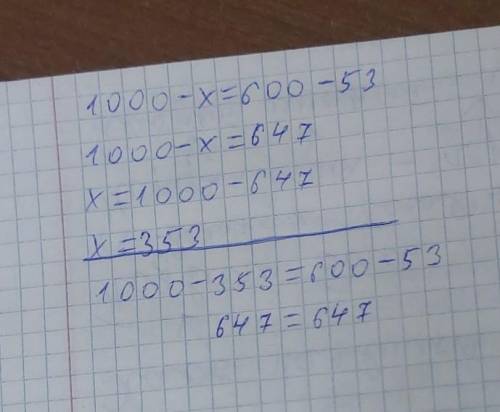 1000-x=600-53
1000-x=647
x=1000-647
x=353
1000-353=600-53
647=647